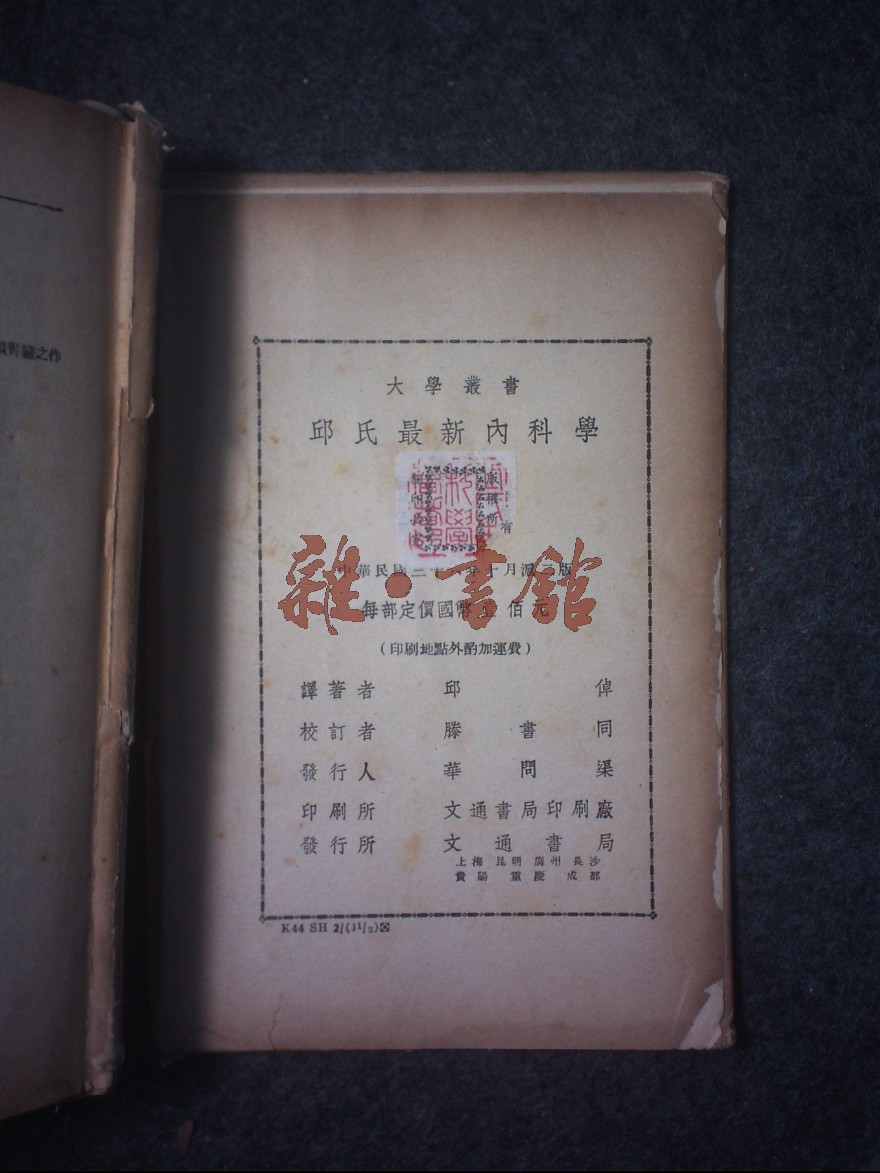 大學叢書
邱氏最新內科學
版權所有
雜·書館
中華民國三十六年十月滬二版
每部定價國幣壹佰元
(印刷地點外酌加運費)
譯著者 邱倬
校訂者 滕書同
發行人 華問渠
印刷所 文通書局印刷廠
發行所 文通書局
上海 昆明 廣州 長沙
貴陽 重慶 成都
K44 SH 2/(11/2)
腎臟之作